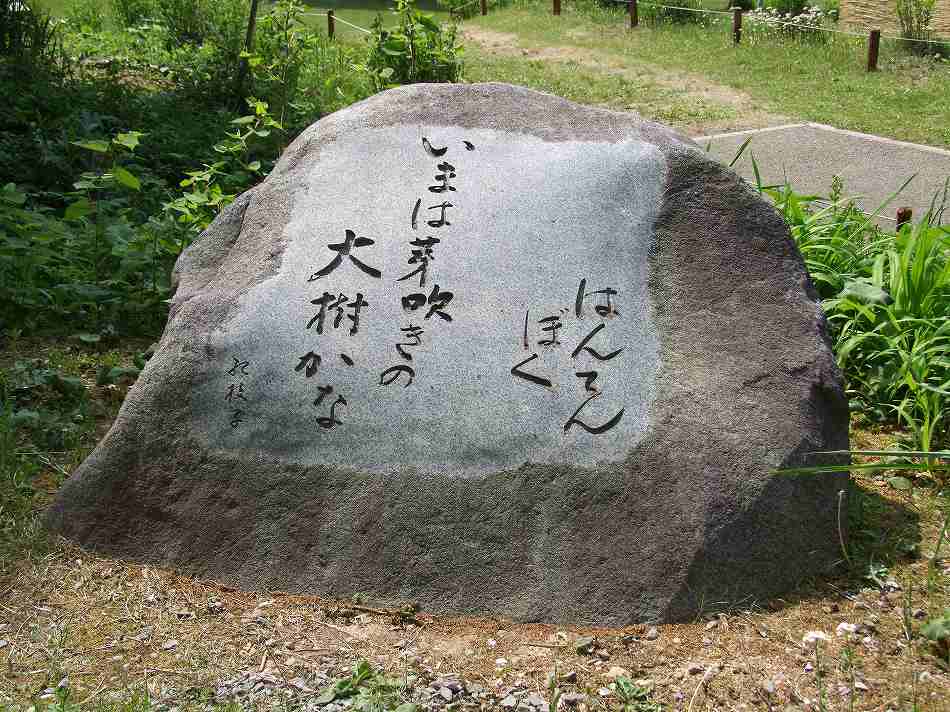 はんてん
ぼく
いまは芽吹きの
大樹かな
紀枝子